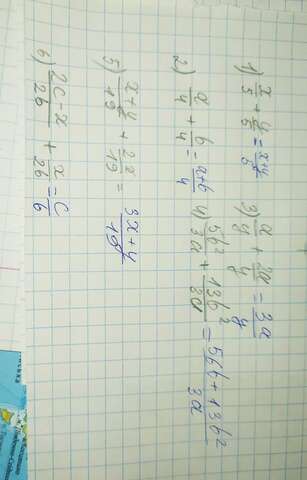 1) x/5 + y/5 = x+y/5 3) a/y + 2a/y = 3a/y
2) a/4 + b/4 = a+b/4 4) 5b²/3a + 13b²/3a = 5bb+13b²/3a
5) x+y/19 + 2x/19 = 3x+y/19
6) 2c-x/2b + x/2b = c/b